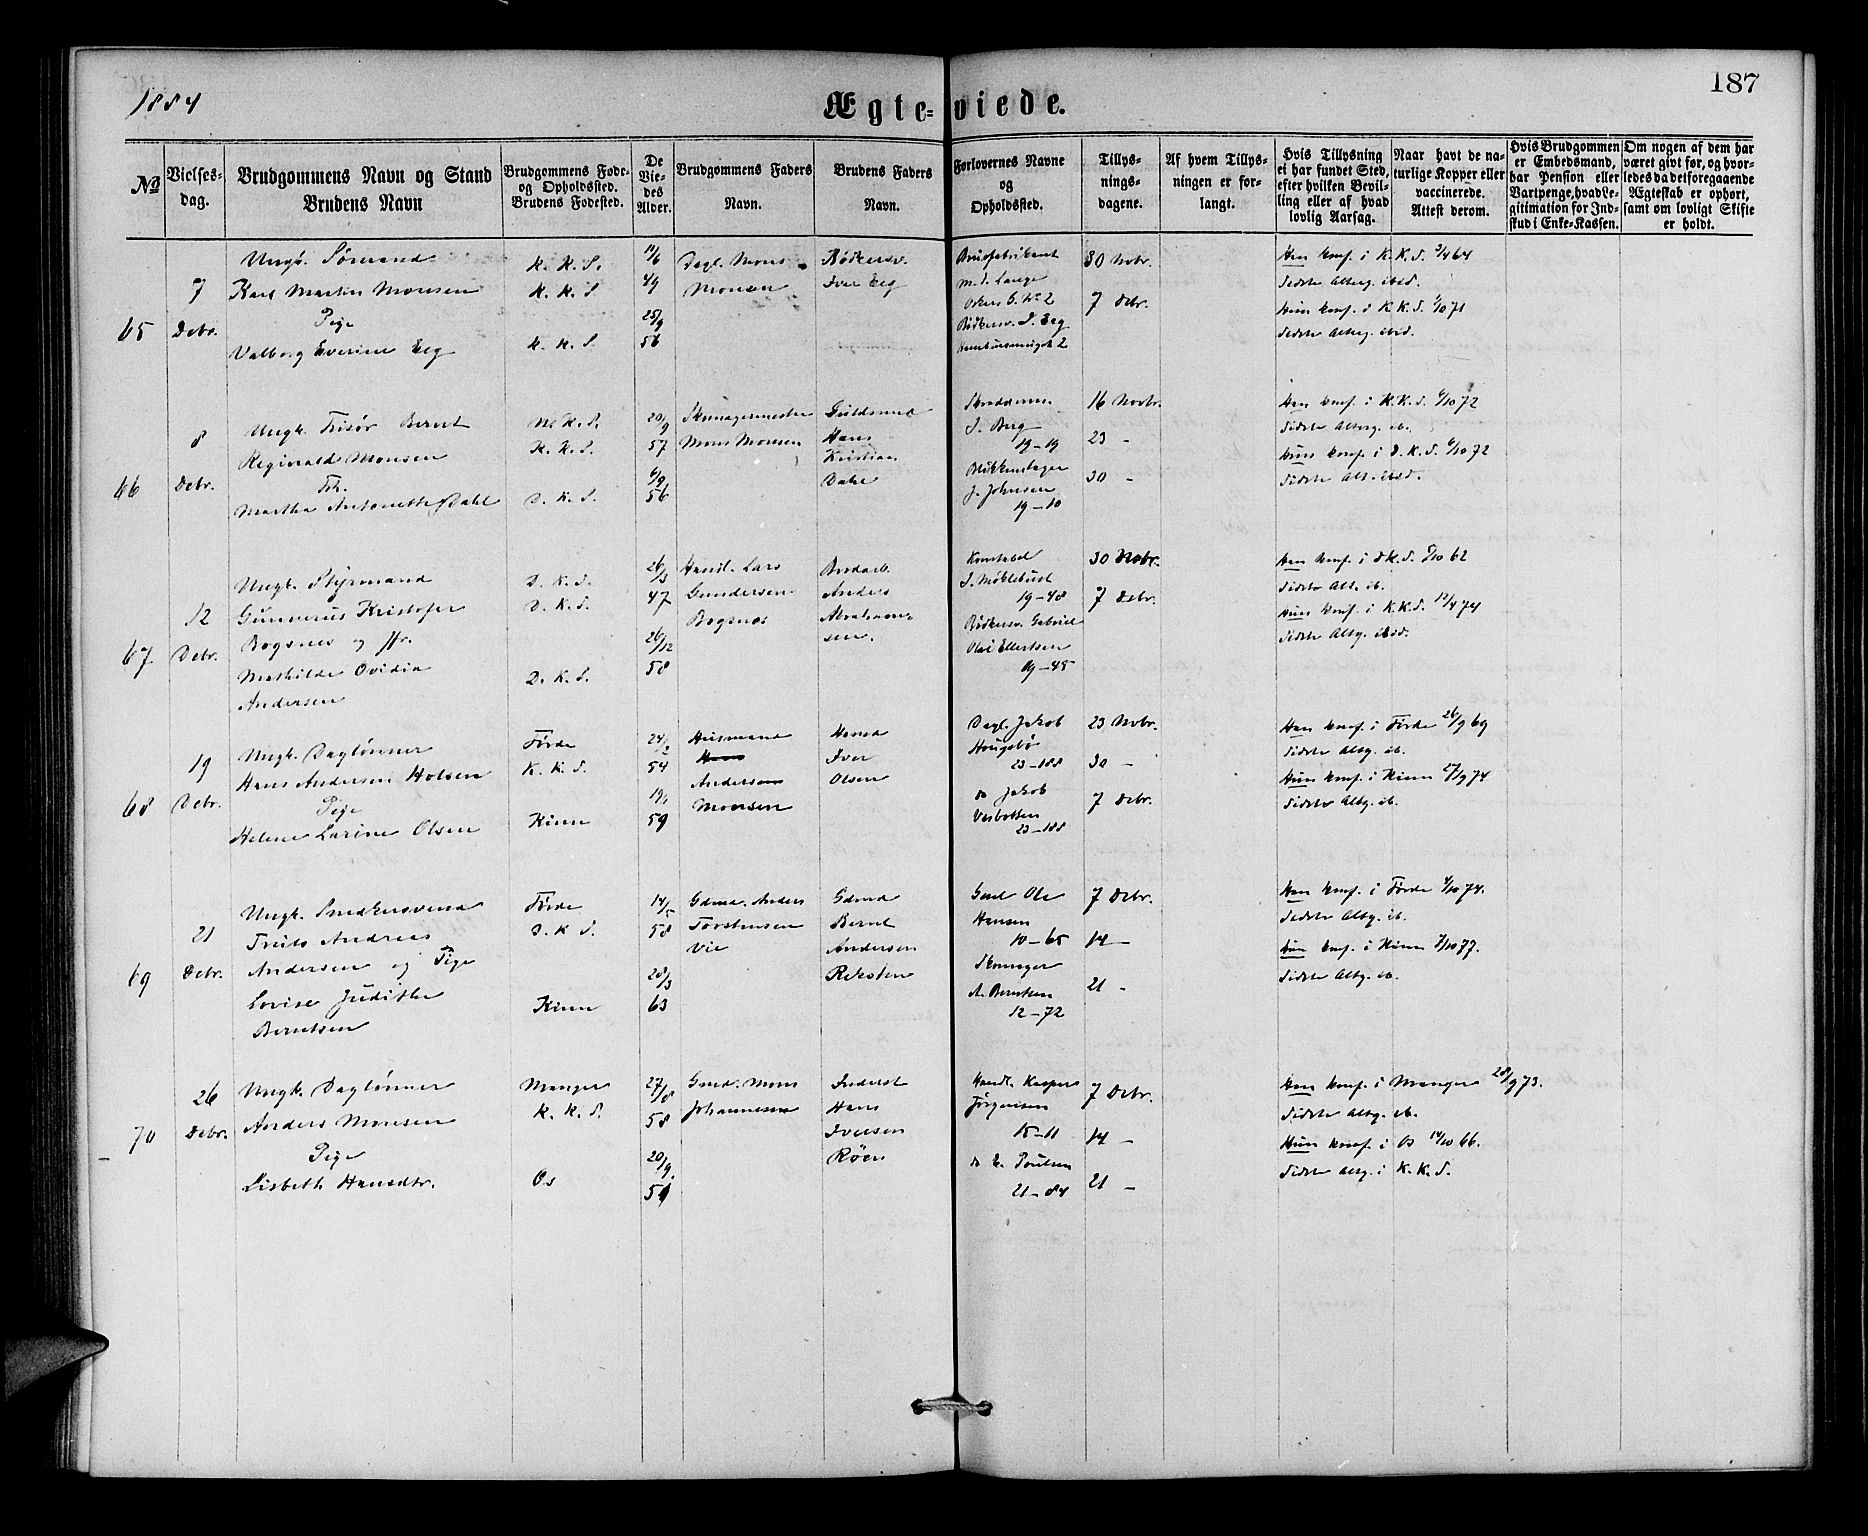 1884
Ægteviede.
187
No
Vielses-
dag.
Brudgommens Navn og Stand
Brudens Navn
Brudgommens Føde-
og Opholdssted.
Brudens Fødested.
De
Vie-
des
Alder.
Brudgommens Faders
Navn.
Brudens Faders
Navn.
Forlovernes Navne
og
Opholdssted.
Tillys-
nings-
dagene.
Af hvem Tillys-
ningen er for-
langt.
Hvis Tillysning
ei har fundet Sted,
efter hvilken Bevil-
ling eller af hvad
lovlig Aarsag.
Naar havt de na-
turlige Kopper eller
vaccinerede.
Attest derom.
Hvis Brudgommen
er Embedsmand,
har Pension eller
Vartpenge, hvad Le-
gitimation for Ind-
skud i Enke-Kassen.
Om nogen af dem har
været givt før, og hvor-
ledes da det foregaaende
Ægteskab er ophørt,
samt om lovligt Skifte
er holdt.
65
7
Debr.
Ungk. Sømand
Karl Martin Monsen
Pige
Valborg Everine Eeg
K. K. S.
K. K. S.
K. K. S.
11/6
49
25/9
56
Dagl. Mons
Monsen
Bødkersv.
Iver Eeg
Brusfabrikant
M. L. Lange
Bødkersv. I. Eeg
30 Novbr.
7 Debr.
Han konf. i K. K. S. 3/4 64
Sidste Alterg. ibid.
Hun konf. i K. K. S. 1/10 71
Sidste Alterg. ibid.
66
8
Debr.
Ungk. Frisør Bernt
Reginald Monsen
Frk.
Martha Antonette Dahl
N. K. S.
K. K. S.
D. K. S.
20/9
57
6/9
56
Skomagermester
Mons Monsen
Guldsmed
Hans
Kristian
Dahl
J. Berg
19-19
Blikkenslager
J. Johnsen
19-10
16 Novbr.
23 -
30 -
Han konf. i K. K. S. 6/10 72
Sidste Alterg. ib.
Hun konf. i D. K. S. 6/10 72
Sidste Alt. ibid.
67
12
Debr.
Ungk. Styrmand
Gunnerius Kristofer
Bogsnes og Jfr.
Mathilde Ovidia
Andersen
D. K. S.
D. K. S.
D. K. S.
26/3
47
26/12
58
Handl. Lars
Gundersen
Bogsnes
Anders
Abraham-
sen.
Konstabel
J. Møklebust
19-48
Bødkersv. Gabriel
Olai Ellertsen
19-45
30 Novbr.
7 Debr.
Han konf. i D. K. S. 5/10 62
Sidste Alt. ib.
Hun konf. i K. K. S. 12/4 74
Sidste Altg. ibid.
68
19
Debr.
Ungk. Daglønner
Hans Andersen Holsen
Pige
Helene Larine Olsen
Førde
K. K. S.
Kinn
24/2
54
19/1
59
Husmand
Hans
Andersen
Monsen
Iver
Olsen
Dagl. Jakob
Haugsbø
23-188
do Jakob
23-188
23 Novbr.
30 -
7 Debr.
Han konf. i Førde 26/9 69
Sidste Altg. ib.
Hun konf. i Kinn 27/9 74
Sidste Altg. ib.
69
21
Debr.
Ungk. Snedkersvend
Truls Andreas
Andersen og Pige
Lovise Judithe
Berntsen
Førde
D. K. S.
Kinn
14/5
58
28/3
63
Gdmd. Anders
Torstensen
Vie
Gdmd
Bernt
Andersen
Reksten
Ole
Hansen
10-65
Skomager
A. Berntsen
12-72
7 Debr.
14 -
21 -
Han konf. i Førde 4/10 74.
Sidste Altg. ib.
Hun konf. i Kinn 7/10 77.
Sidste Altg. ib.
70
26
Debr.
Ungk. Daglønner
Anders Monsen
Pige
Lisbeth Hansdtr.
Manger
K. K. S.
Os
27/8
58
20/9.
51
Gmd. Mons
Johannesen
Inderst
Hans
Iversen
Røen
Handl. Kasper
Jørgensen
15-11
do E. Poulsen
21-84
7 Debr.
14 -
21 -
Han konf. i Manger 28/9 73.
Sidste Altg. ib.
Hun konf. i Os 14/10 66.
Sidste Altg. i K. K. S.